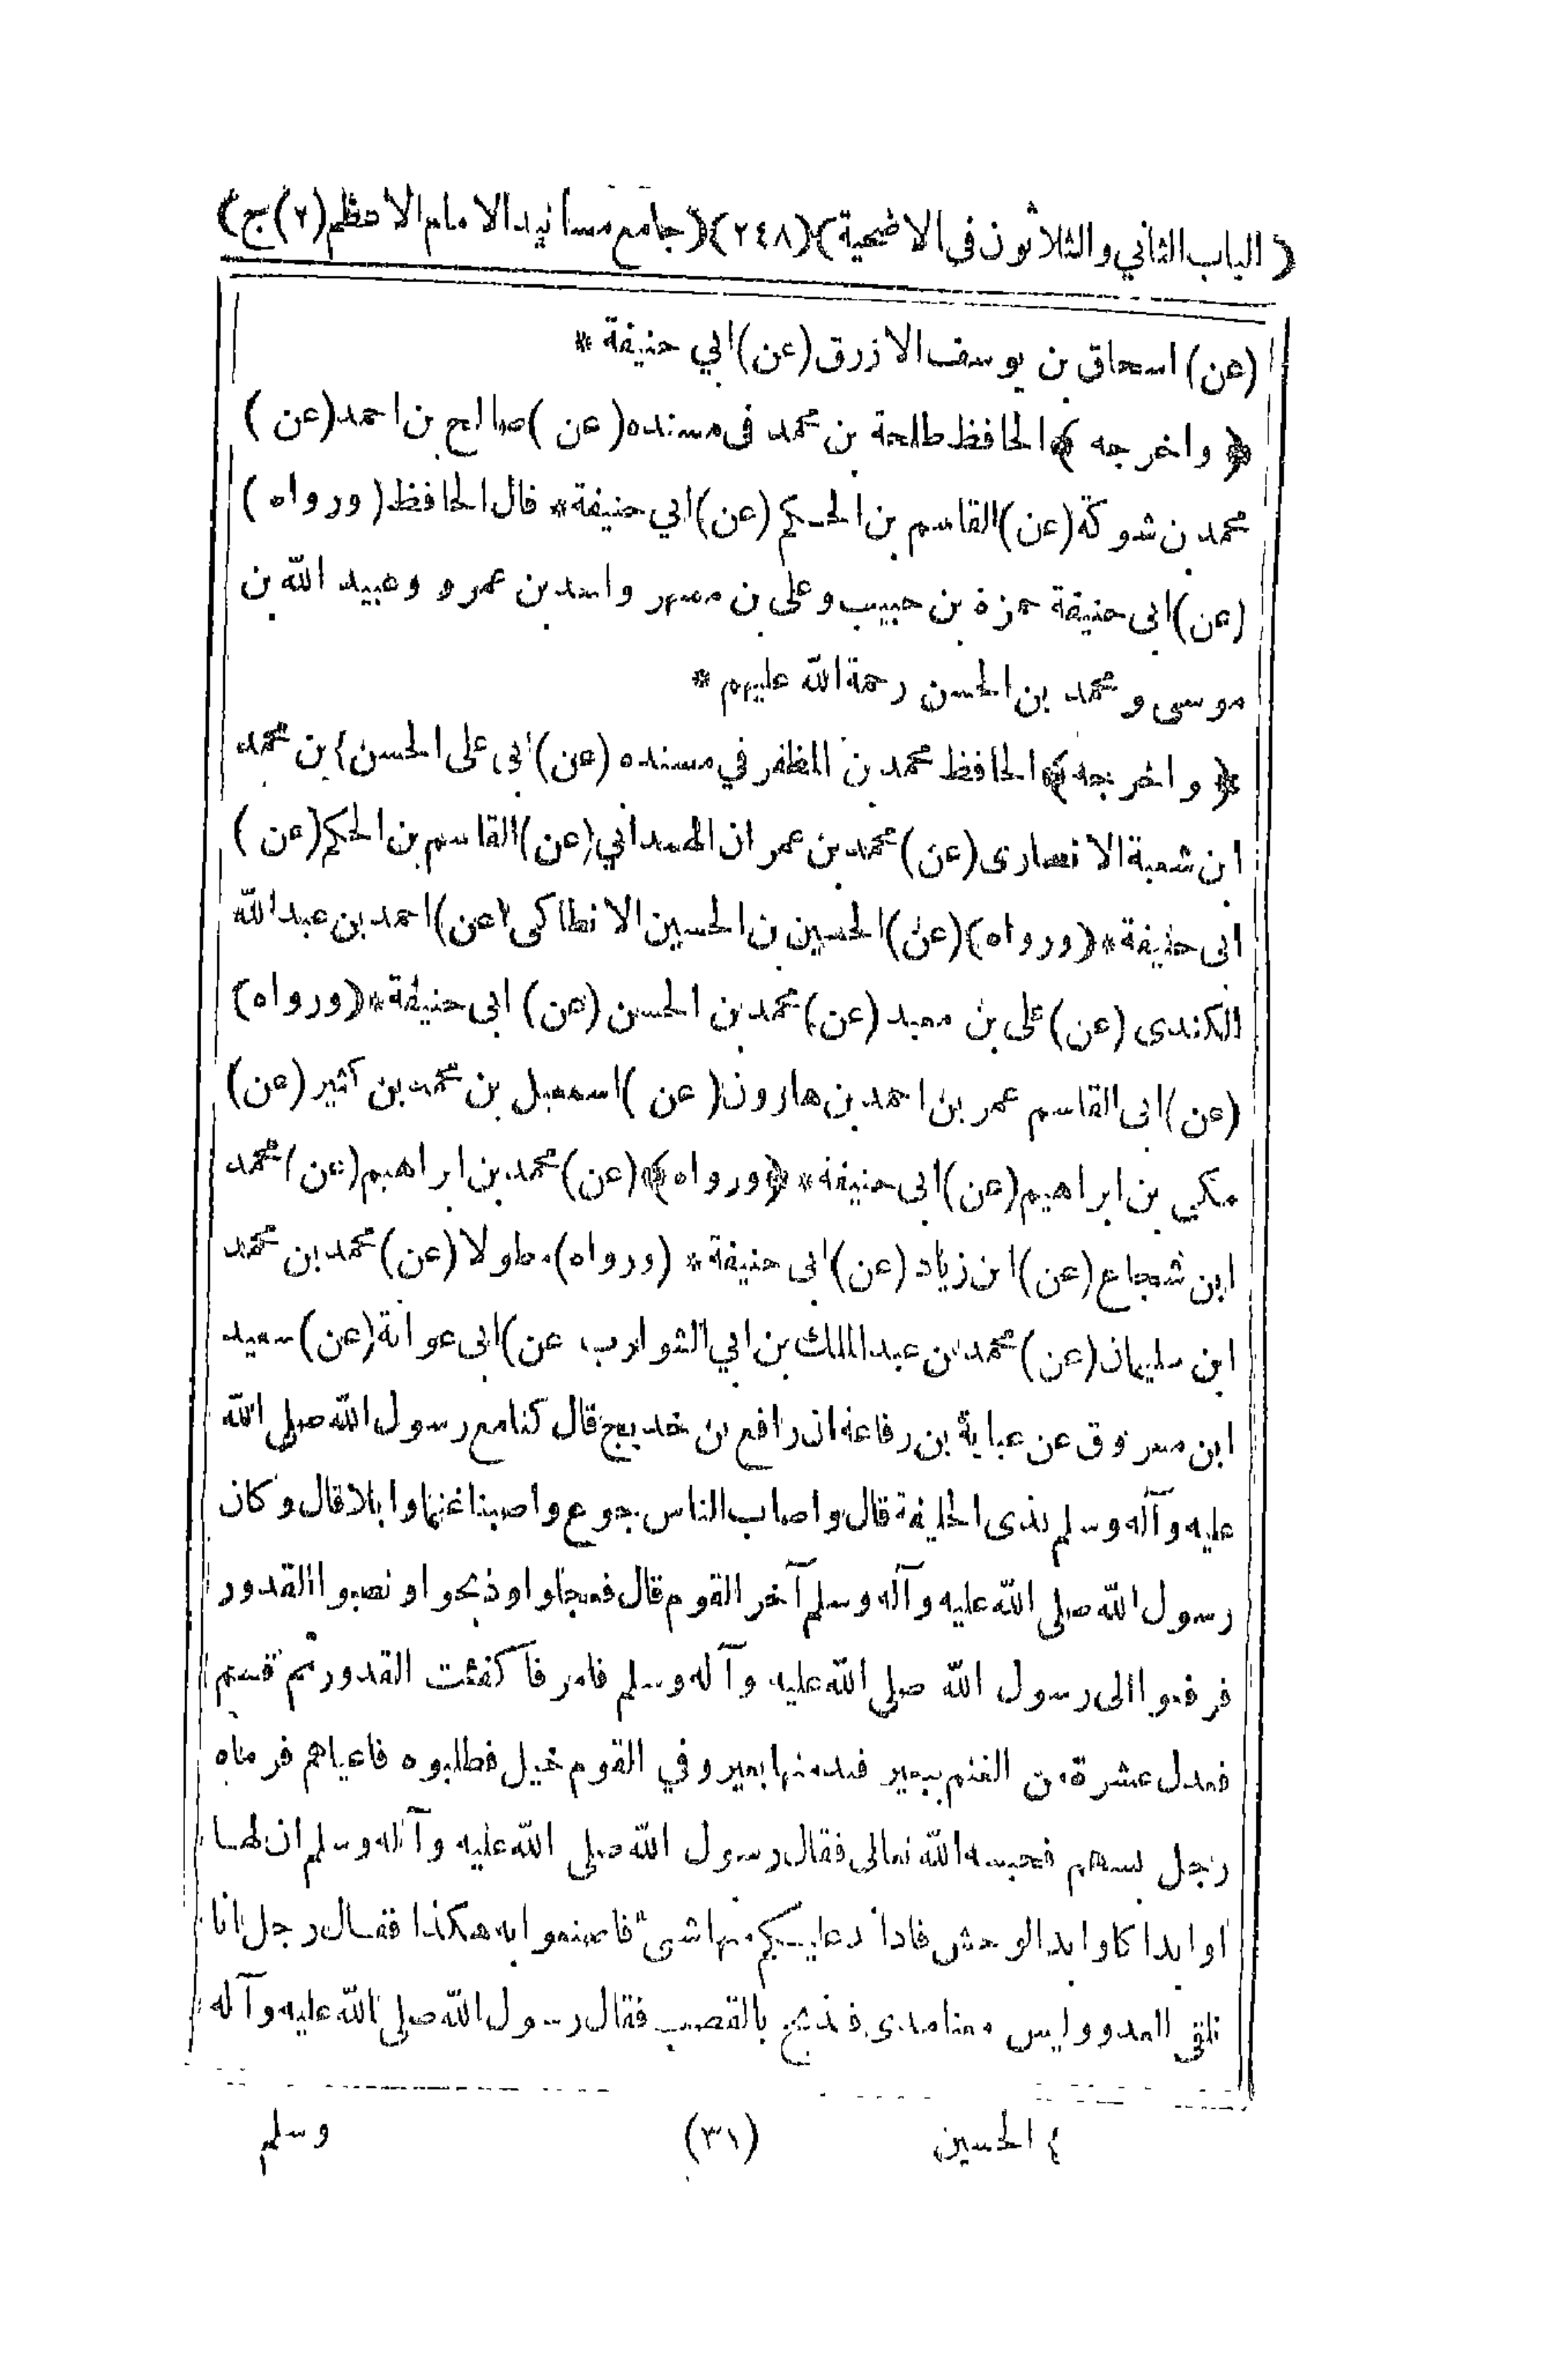 (الباب الثاني والثلاثون في الاضحية) (٢٤٨) (جامع مسانيد الامام الاعظم (٢) ج)
(عن) اسحاق بن يوسف الازرق (عن) ابي حنيفة *
﴿ واخرجه ﴾ الحافظ طلحة بن محمد فى مسنده (عن) صالح بن احمد (عن)
محمد بن شوكة (عن) القاسم بن الحكم (عن) ابي حنيفة * قال الحافظ (ورواه)
(عن) ابى حنيفة حمزة بن حبيب وعلى بن مسهر واسد بن عمرو وعبيد الله بن
موسى ومحمد بن الحسن رحمة الله عليهم *
﴿ واخرجه ﴾ الحافظ محمد بن المظفر في مسنده (عن) ابى على الحسن ٤ بن محمد
ابن شعبة الانصارى (عن) محمد بن عمران الهمداني (عن) القاسم بن الحكم (عن)
ابى حنيفة * (ورواه) (عن) الحسين بن الحسين الانطاكى (عن) احمد بن عبد الله
الكندى (عن) على بن معبد (عن) محمد بن الحسن (عن) ابى حنيفة * (ورواه)
(عن) ابى القاسم عمر بن احمد بن هارون (عن) اسمعيل بن محمد بن كثير (عن)
مكي بن ابراهيم (عن) ابى حنيفة * ﴿ورواه﴾ (عن) محمد بن ابراهيم (عن) محمد
ابن شجاع (عن) ابن زياد (عن) ابى حنيفة * (ورواه) مطولا (عن) محمد بن محمد
ابن سليمان (عن) محمد بن عبد الملك بن ابي الشوارب عن) ابى عوانة (عن) سعيد
ابن مسروق عن عباية بن رفاعة ان رافع بن خديج قال كنا مع رسول الله صلى الله
عليه وآله وسلم بذى الحليفة قال واصاب الناس جوع واصبنا غنما وابلا قال وكان
رسول الله صلى الله عليه وآله وسلم آخر القوم قال فعجلوا وذبحوا ونصبوا القدور
فرفعوا الى رسول الله صلى الله عليه وآله وسلم فامر فاكفئت القدور ثم قسم
فعدل عشرة من الغنم ببعير فند منها بعير وفي القوم خيل فطلبوه فاعياهم فرماه
رجل بسهم فحبسه الله تعالى فقال رسول الله صلى الله عليه وآله وسلم ان لها
اوابدا كاوابد الوحش فاذا رد عليكم منها شيء فاصنعوا به هكذا فقال رجل انا
نلقى العدو وليس معنا مدى فنذبح بالقصب فقال رسول الله صلى الله عليه وآله
٤ الحسين (٣١) وسلم